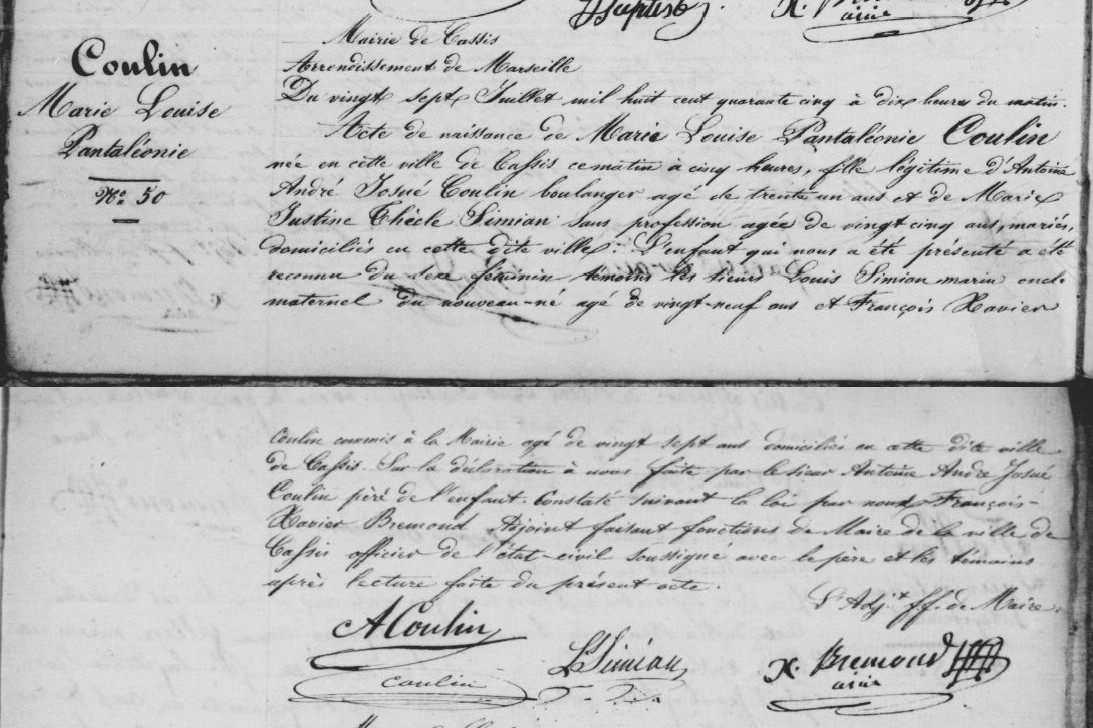 Baptiste X. Bremond
ainé
Coulin
Marie Louise
Pantaléonie
No. 50
Mairie de Cassis
Arrondissement de Marseille
Du vingt sept Juillet mil huit cent quarante cinq à dix heures du matin.
Acte de naissance de Marie Louise Pantaléonie Coulin
née en cette ville de Cassis ce matin à cinq heures, fille légitime d'Antoine
André Josué Coulin boulanger agé de trente un ans et de Marie
Justine Thècle Simian sans profession agée de vingt cinq ans, mariés,
domiciliés en cette dite ville. L'enfant qui nous a été présenté a été
reconnu du sexe féminin témoins les sieurs Louis Simian marin oncle
maternel du nouveau-né agé de vingt-neuf ans et François Xavier
Coulin commis à la Mairie agé de vingt sept ans domiciliés en cette dite ville
de Cassis. Sur la déclaration à nous faite par le sieur Antoine André Josué
Coulin père de l'enfant. Constaté suivant la loi par nous François-
Xavier Bremond Adjoint faisant fonctions de Maire de la ville de
Cassis officier de l'état-civil soussigné avec le père et les témoins
après lecture faite du présent acte.
L'Adj.t ff. de Maire.
A Coulin
L Simian X. Bremond
coulin ainé